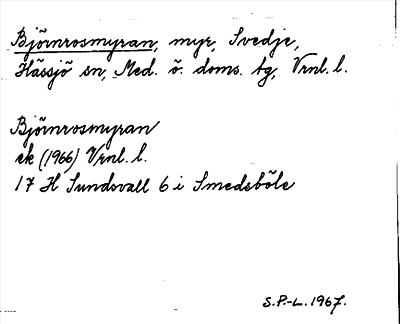 Björnrosmyran, myr, Svedje,
Hässjö sn, Med. ö. doms. tg, Vrnl. l.
Björnrosmyran
ek (1966) Vrnl. l.
17 H Sundsvall 6 i Smedsböle
S.P.-L. 1967.